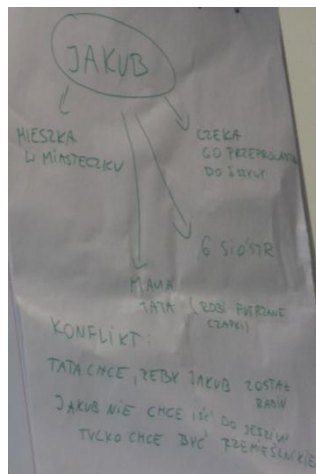 JAKUB
MIESZKA
W MIASTECZKU
CZEKA
GO PRZEPROWADZKA
DO
6 SIÓSTR
MAMA
TATA (ROBI FUTRZANE
CZAPKI)
KONFLIKT:
TATA CHCE, ŻEBY JAKUB ZOSTAŁ
RABIN
JAKUB NIE CHCE IŚĆ DO JESZIWY
TYLKO CHCE BYĆ RZEMIEŚLNIKIE